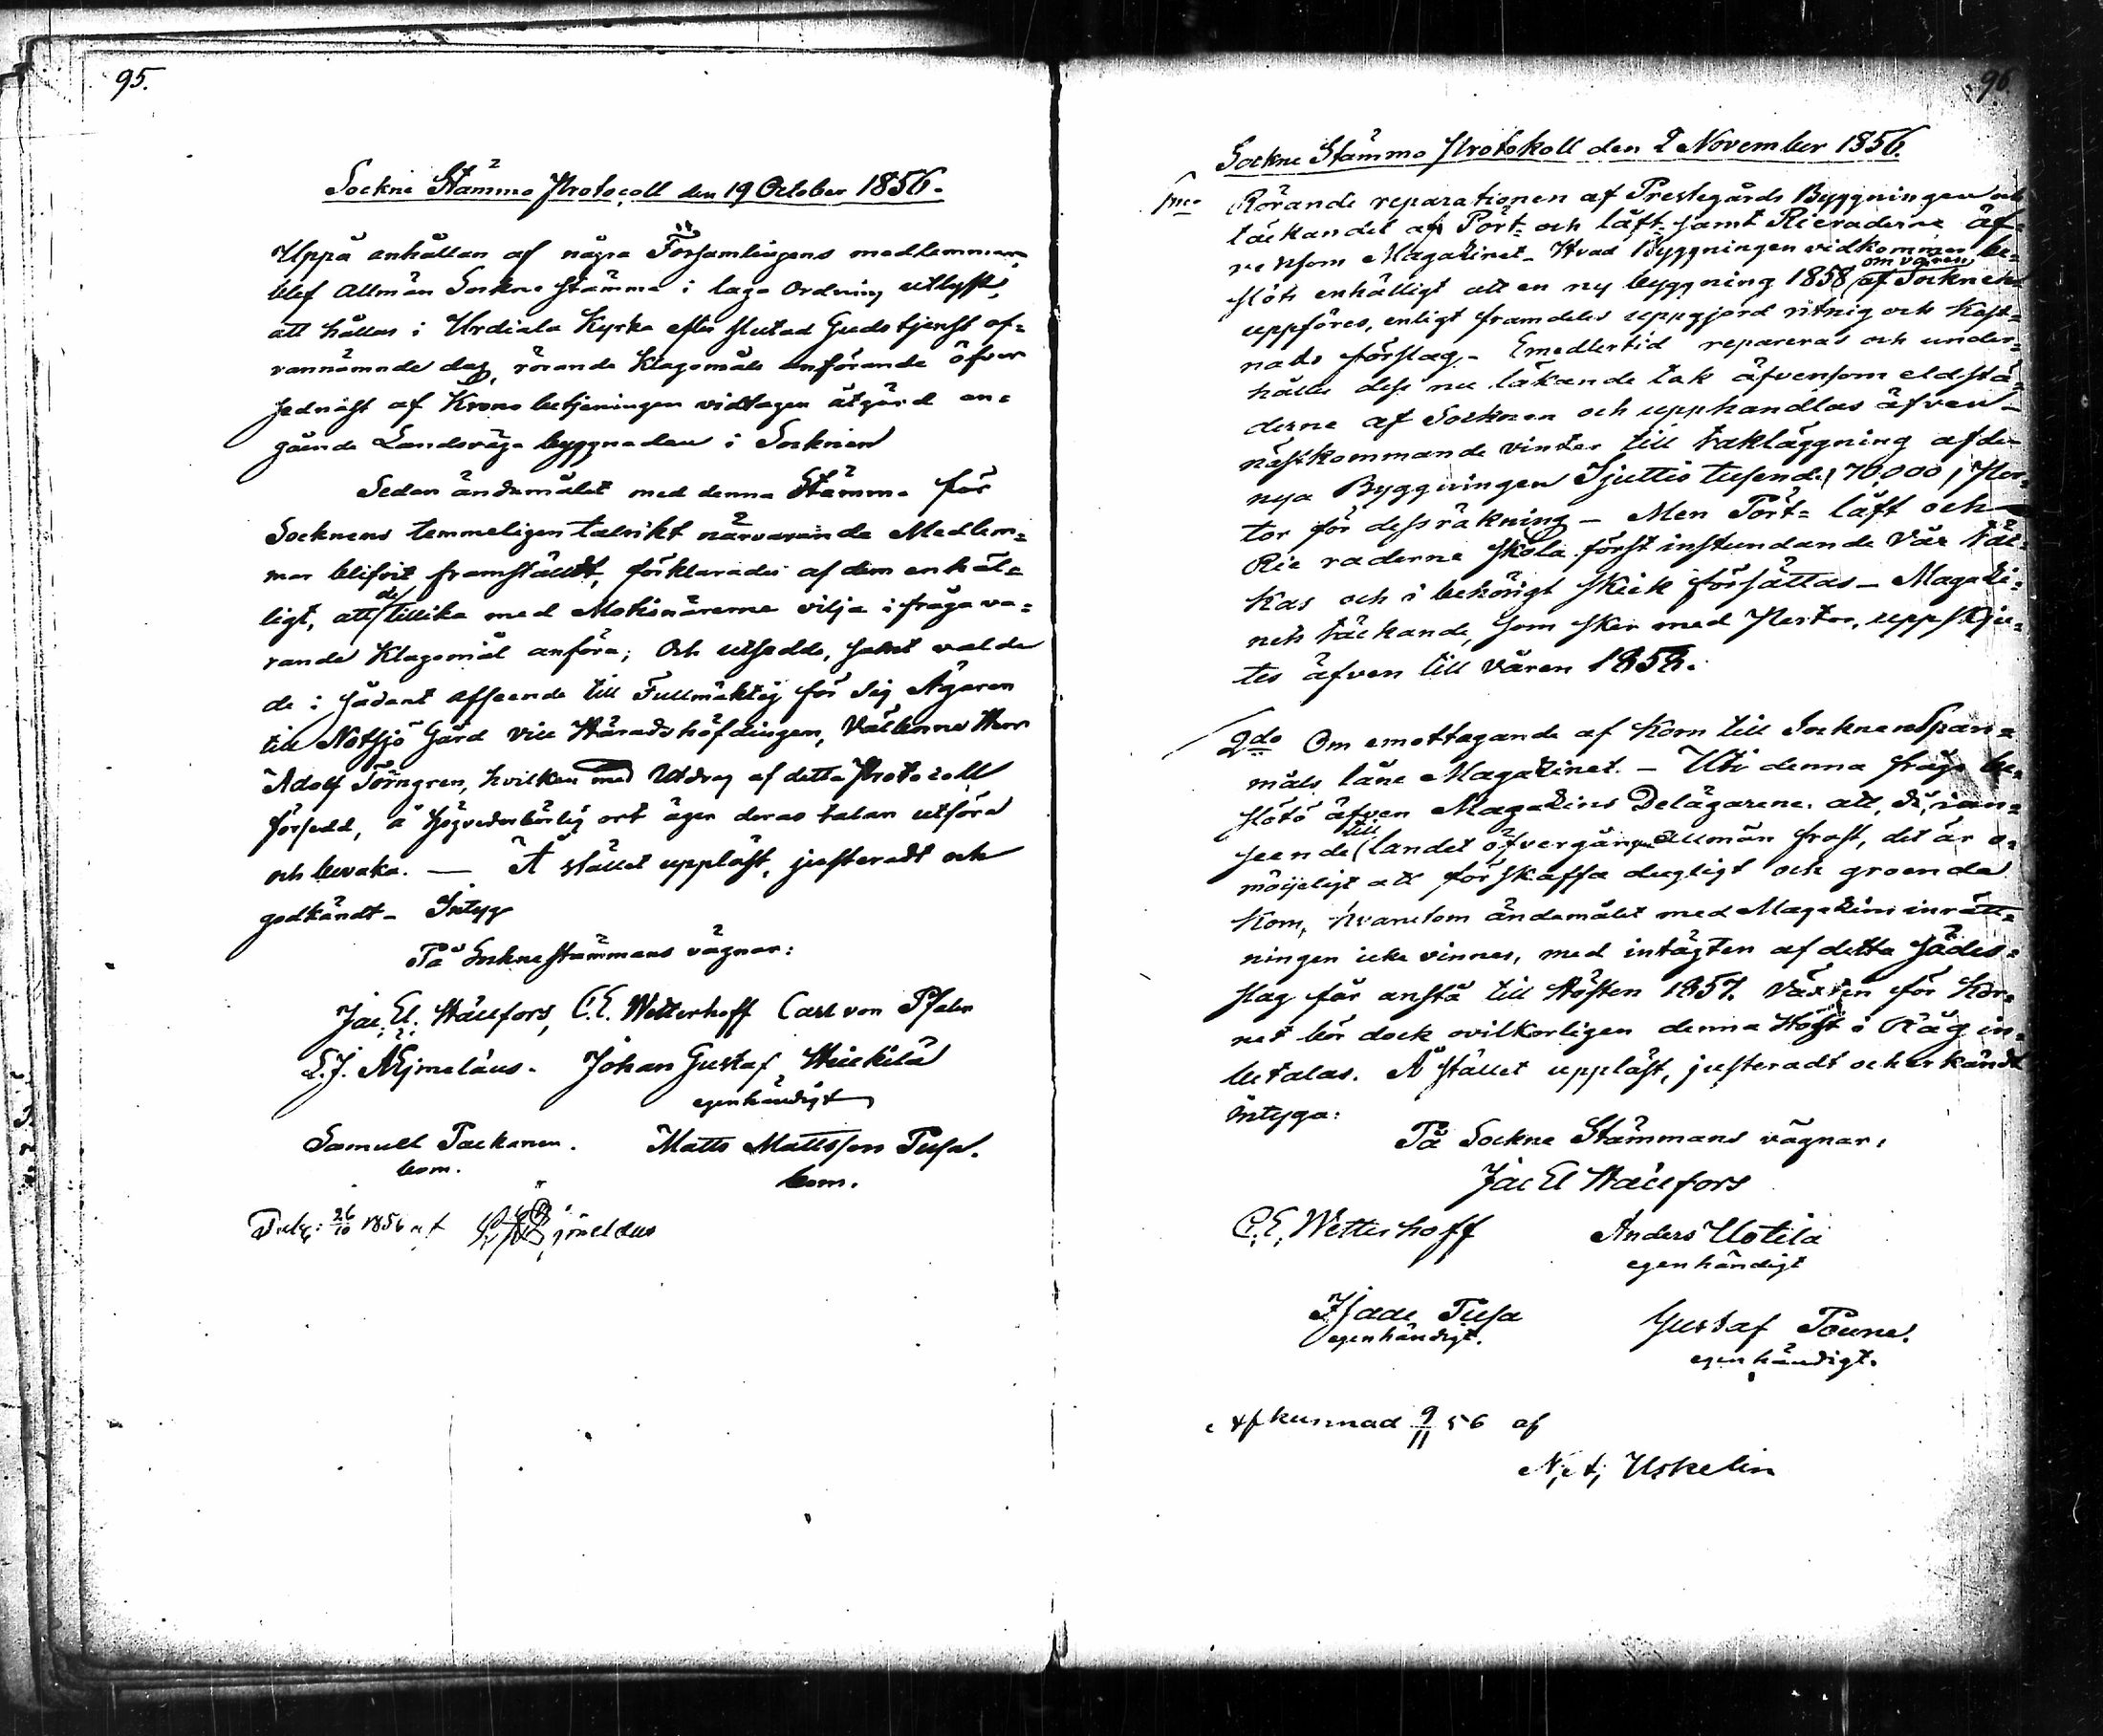 95.
Sockne Stämmo Protocoll den 19 October 1856.
Uppå anhållan af några Församlingens medlemmar,
blef Allmän Sockne stämma i laga Ordning utlyst,
att hållas i Urdiala Kyrka efter slutad Gudstjenst of=
vannämnde dag, rörande Klagomåls anförande öfver
sednast af Krono betjeningen vidtagen åtgärd an=
gående Landsvägs byggnaden i Socknen
Sedan ändamålet med denna Stämma för
Socknens temmeligen talrikt närvarande Medlem=
mar blifvit framstäldt, förklarades af dem enhäl=
ligt, att de tillika med Motionärerne vilja i fråga va=
rande Klagomål anföra; Och utsedde, samt valde
de i sådant afseende till Fullmäktig för sig Ägaren
till Notsjö Gård Vice Häradshöfdingen, Välborne Herr
Adolf Törngren, hvilken med Utdrag af detta Protocoll
försedd, å Högvederbörlig ort äger deras talan utföra
och bevaka. — Å stället uppläst, justeradt och
godkändt - Intyga
På Sockne stämmans vägnar:
Jac. El. Hällfors, C. E. Wetterhoff Carl von Pfaler
L. J. Äijmeläus. Johan Gustaf Heickilä
egenhändigt
Samuel Packanen. Matts Mattsson Tusa.
bom. bom.
26/10 1856 af
96.
Sockne Stämmo Protokoll den 2 November 1856.
1mo Rörande reparationen af Prestegårds Byggningen och
täckandet af Pört- och läft- samt Rieraderne äf=
vensom Magazinet - Hvad Byggningen vidkommer be=
slöts enhälligt att en ny byggning 1858 om våren af Socknen
uppföres, enligt framdeles uppgjord ritnig och Kost=
nads förslag. - Emedlertid repareras och under=
hålles dess nu läkande tak äfvensom eldstä=
derne af Socknen och upphandlas äfven
nästkommande vinter till takläggning af den
nya Byggningen Sjuttio tusende, 70,000, Per=
tor för dess räkning - Men Pört= läft och
Rie raderne skola först instundande Vår täc=
kas och i behörigt skick försättas - Magazi=
nets täckande, som sker med Pertor, uppskju=
tes äfven till Våren 1858.
2do Om emottagande af Korn till Socknens Span=
måls låne Magazinet. - Uti denna fråga be=
slöto äfven Magazins Delägarene, att, då, i an=
seende till landet öfvergångne Allmän frost, det är o=
möijeligt att förskaffa dugligt och groende
Korn, hvarutom ändamålet med Magazins inrätt=
ningen icke vinnes, med intägten af detta Sädes=
slag får anstå till Hösten 1857. Växten för Kor=
net bör dock ovilkorligen denna Höst i Råg in=
betalas. Å stället uppläst, justeradt och erkändt
Intyga:
På Sockne Stämmans vägnar:
Jac El Hällfors
C. E. Wetterhoff Anders Uotila
egenhändigt
Isaac Tusa Gustaf Poune.
egenhändigt. egenhändigt.
Afkunnad 9/11 56 af
N. A. Uskelin